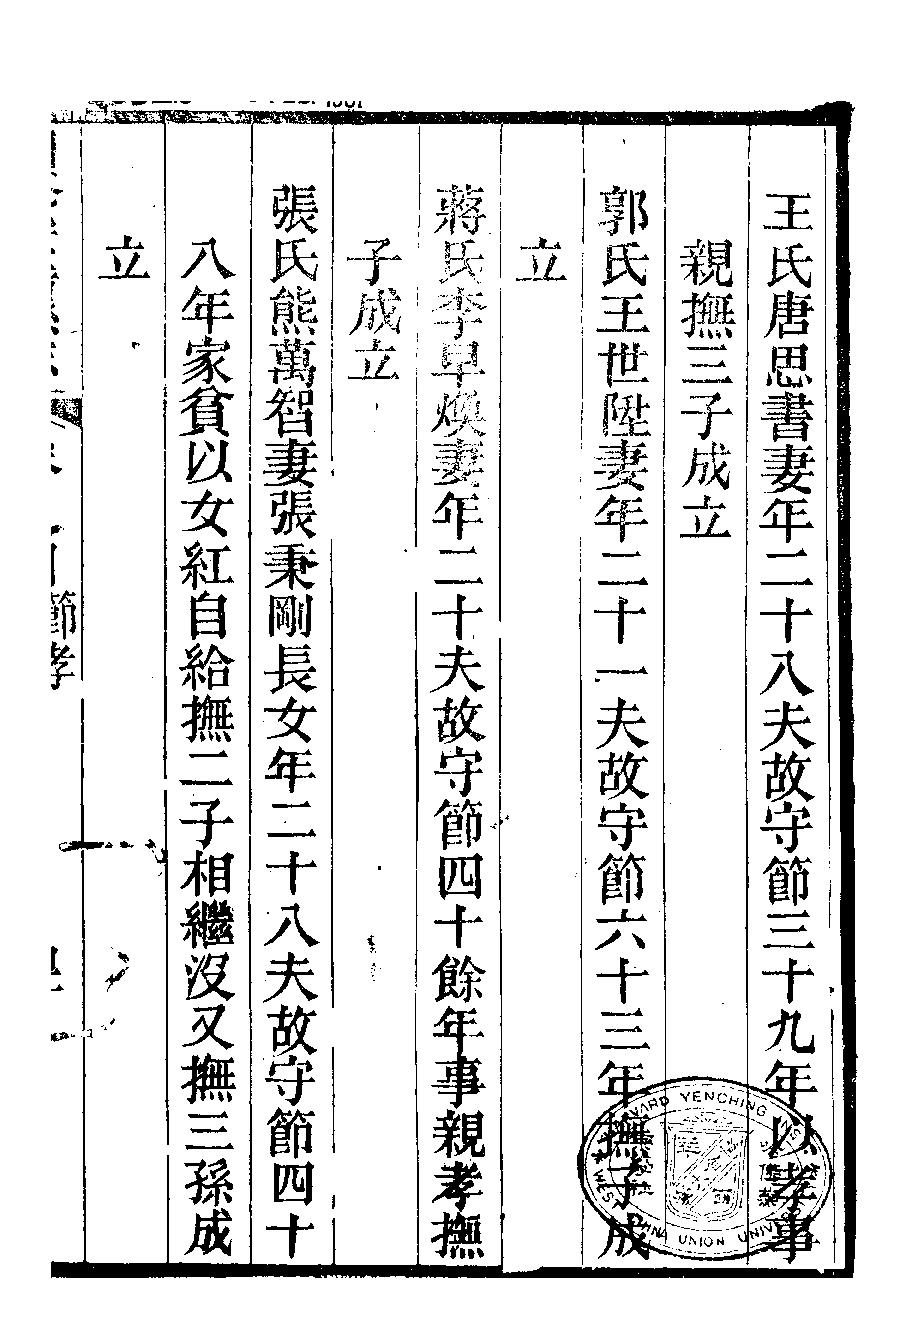 王氏唐思書妻年二十八夫故守節三十九年以孝事
親撫三子成立
郭氏王世陞妻年二十一夫故守節六十三年撫子成
立
蔣氏李早煥妻年二十夫故守節四十餘年事親孝撫
子成立
張氏熊萬智妻張秉剛長女年二十八夫故守節四十
八年家貧以女紅自給撫二子相繼沒又撫三孫成
立
節孝
YENCHING
UNION